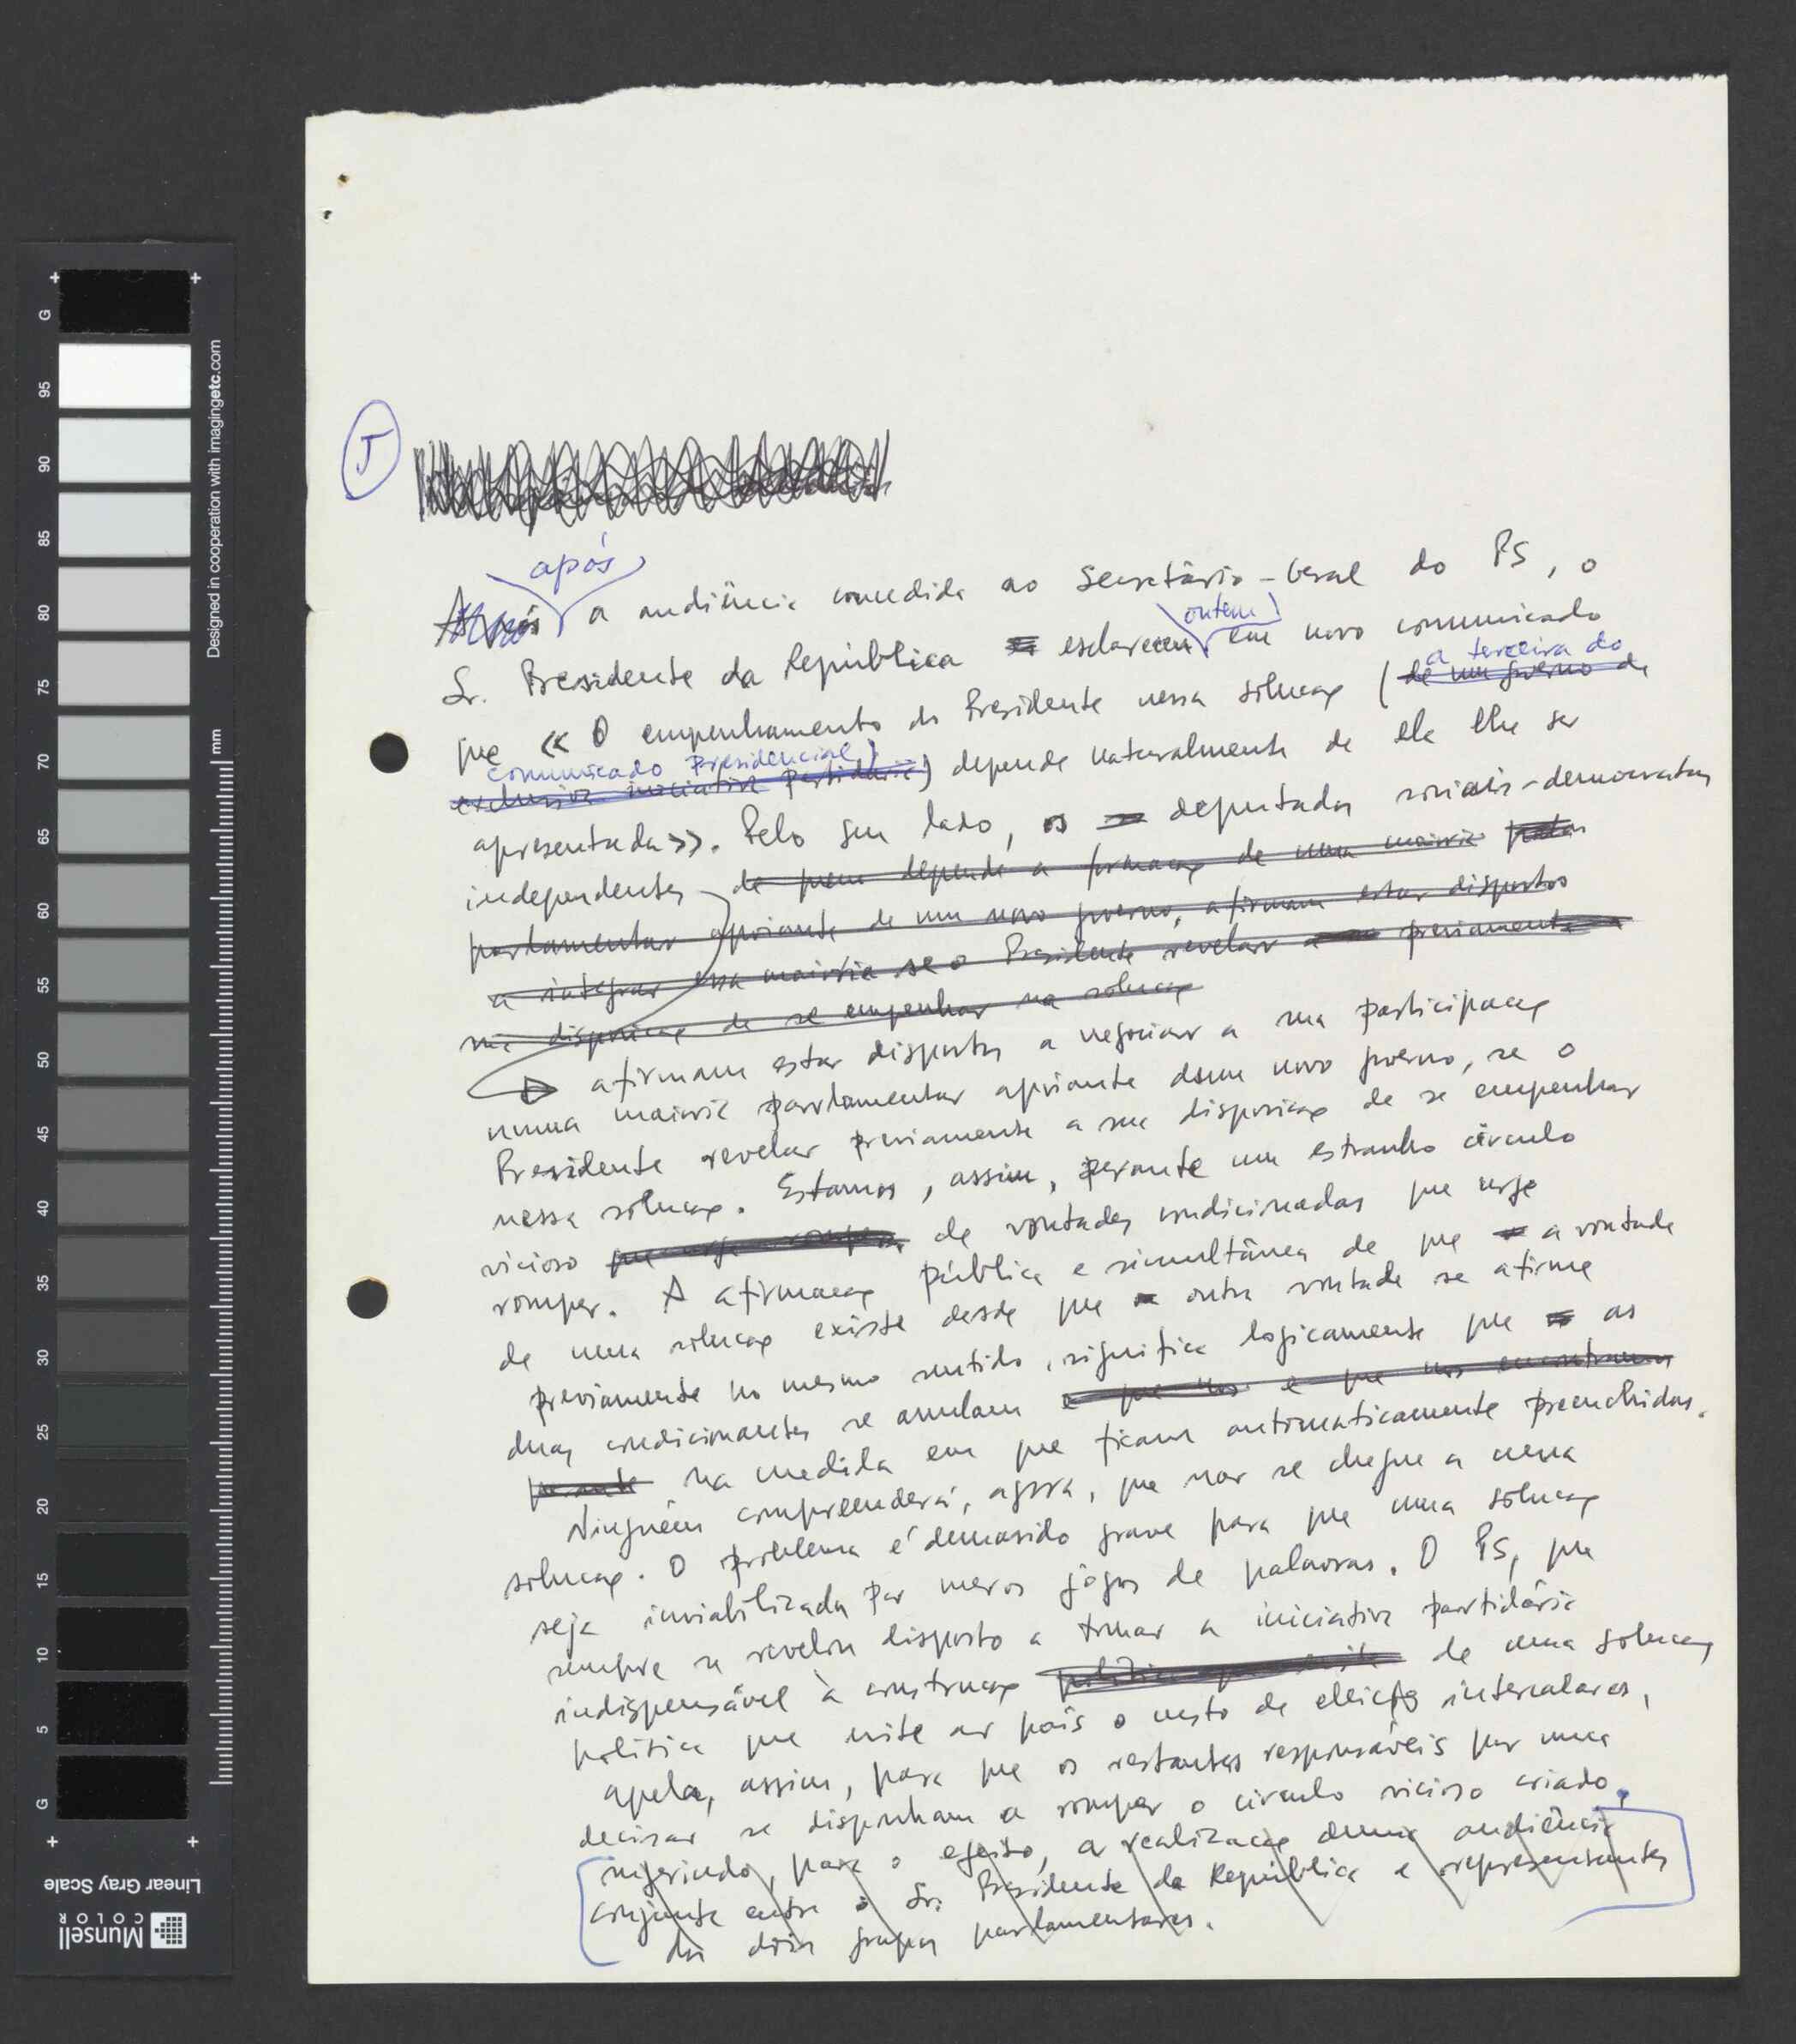 5
após
a audiência concedida ao Secretário-Geral do PS, o
ontem
Sr. Presidente da República esclareceu em novo comunicado
a terceira do
que «O empenhamento do Presidente nessa solução (de um governo de
comunicado Presidencial)
exclusiva iniciativa partidária) depende naturalmente de ela lhe ser
apresentada». Pelo seu lado, os deputados sociais-democratas
independentes de quem depende a formação de uma maioria
parlamentar apoiante de um novo governo, afirmam estar dispostos
a integrar essa maioria se o Presidente revelar previamente a
sua disposição de se empenhar na solução
afirmam estar dispostos a negociar a sua participação
numa maioria parlamentar apoiante dum novo governo, se o
Presidente revelar previamente a sua disposição de se empenhar
nessa solução. Estamos, assim, perante um estranho círculo
vicioso que urge romper de vontades condicionadas que urge
romper. A afirmação pública e simultânea de que a vontade
de uma solução existe desde que outra vontade se afirme
previamente no mesmo sentido, significa logicamente que as
duas condicionantes se anulam e que nos e que nos encontramos
perante na medida em que ficam automaticamente preenchidas.
Ninguém compreenderá, agora, que não se chegue a uma
solução. O problema é demasido grave para que uma solução
seja inviabilizada por meros jogos de palavras. O PS, que
sempre se revelou disposto a tomar a iniciativa partidária
indispensável à construção de uma solução
política que evite ao país o custo de eleições intercalares,
apela, assim, para que os restantes responsáveis por uma
decisão se disponham a romper o círculo vicioso criado.
sugerindo, para o efeito, a realização duma audiência
conjunta entre o Sr. Presidente da República e representantes
dos dois grupos parlamentares.
G
95
90
85
80
75
70
65
60
55
50
45
40
35
30
25
20
15
10
5
G
mm
Designed in cooperation with imagingetc.com
Linear Gray Scale
Munsell
COLOR